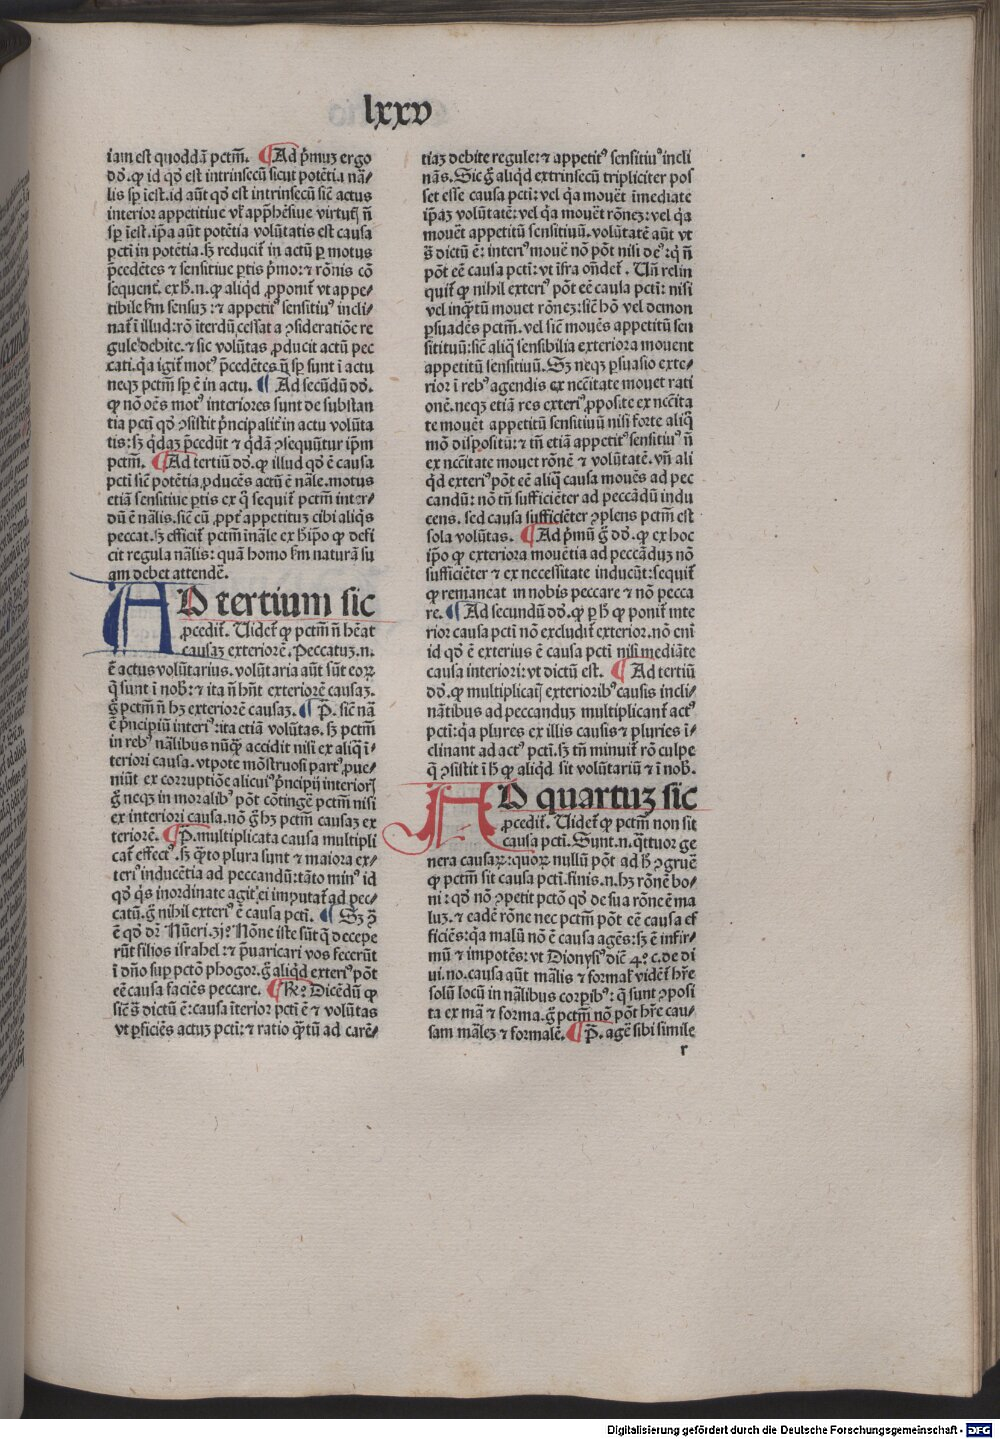 lxxv
iam est quoddā pctm̄. ¶ Ad p̄muꝫ ergo
dō. ꝙ id qḋ est intrinsecū sicut potētia nā⸗
lis sꝑ īest. id aūt qḋ est intrinsecū sic̄ actus
interior appetitiue vl̓ app̄hēsiue virtutꝭ n̄
sꝑ īest. ip̄a aūt potētia volūtatis est causa
pcti in potētia. sꝫ reducit̄ in actū ꝑ motus
p̄cedētes ⁊ sensitiue ꝑtis p̄mo: ⁊ rōnis cō
sequent̄. ex h̄.n. ꝙ aliqd̄ ꝓponit̄ vt appe⸗
tibile ẜm sensuꝫ: ⁊ appetitꝰ sensitiuꝰ incli⸗
nat̄ ī illud: rō īterdū cessat a ꝯsideratiōe re
gule debite. ⁊ sic volūtas ꝓducit actū pec
cati. qa igit̄ motꝰ p̄cedētes n̄ sꝑ sunt ī actu
neqꝫ pctm̄ sꝑ ē in actu. ¶ Ad secūdū dō.
ꝙ nō oēs motꝰ interiores sunt de substan
tia pcti qḋ ꝯsistit p̄ncipalit̄ in actu volūta
tis: sꝫ qdaꝫ p̄cedūt ⁊ qdā ꝯsequūtur ip̄m
pctm̄. ¶ Ad tertiū dō. ꝙ illud qḋ ē causa
pcti sic̄ potētia ꝓducēs actū ē nāle. motus
etiā sensitiue ꝑtis ex q̄ sequit̄ pctm̄ inter⸗
dū ē nālis. sic̄ cū ꝓpt̄ appetituꝫ cibi aliqs
peccat. sꝫ efficit̄ pctm̄ īnāle ex h̓ ip̄o ꝙ defi
cit regula nālis: quā homo ẜm naturā su
am debet attendē.
AD tertium sic
ꝓcedit̄. Uidet̄ ꝙ pctm̄ n̄ hēat
causaꝫ exteriorē. Peccatuꝫ.n.
ē actus volūtarius. volūtaria aūt sūt eoꝝ
q̄ sunt ī nob̄: ⁊ ita n̄ hn̄t exteriorē causaꝫ.
g̊ pctm̄ n̄ hꝫ exteriorē causaꝫ. ¶ P̄. sic̄ nā
ē p̄ncipiū interiꝰ: ita etiā volūtas. sꝫ pctm̄
in rebꝰ nālibus nūqꝫ accidit nisi ex aliq̄ ī⸗
teriori causa. vtpote mōstruosi partꝰ ꝓue⸗
niūt ex corruptiōe alicuiꝰ p̄ncipij interiorꝭ
g̊ neqꝫ in moralibꝰ pōt cōtingē pctm̄ nisi
ex interiori causa. nō g̊ hꝫ pctm̄ causaꝫ ex
teriorē. ¶ P̄. multiplicata causa multipli
cat̄ effectꝰ. sꝫ q̄to plura sunt ⁊ maiora ex⸗
teriꝰ inducētia ad peccandū: tāto minꝰ id
qḋ q̇s inordinate agit ei imputat̄ ad pec⸗
catū. g̊ nihil exteriꝰ ē causa pcti. ¶ Sꝫ ꝯ̄
ē qḋ dr̄ Nūeri.3j? Nōne iste sūt q̄ decepe
rūt filios israhel: ⁊ p̄uaricari vos fecerūt
ī dn̄o suꝑ pctō phogor. g̊ aliqd exteriꝰ pōt
eē causa faciēs peccare. ¶ Rn̄? Dicēdū ꝙ
sic̄ s̄ dictū ē: causa īterior pcti ē ⁊ volūtas
vt ꝑficiēs actuꝫ pcti: ⁊ ratio q̄tū ad carē⸗
tiaꝫ debite regule: ⁊ appetitꝰ sensitiuꝰ incli
nās. Sic g̊ aliqd̄ extrinsecū tripliciter pos
set esse causa pcti: vel qa mouēt īmediate
ip̄aꝫ volūtatē: vel qa mouēt rōneꝫ: vel qa
mouēt appetitū sensitiuū. volūtatē aūt vt
s̄ dictū ē: interiꝰ mouē nō pōt nisi deꝰ: q̇ n̄
pōt eē causa pcti: vt īfra oñdet̄. Un̄ relin
quit̄ ꝙ nihil exteriꝰ pōt eē causa pcti: nisi
vel inq̄tū mouet rōneꝫ: sic̄ hō vel demon
ꝑsuadēs pctm̄. vel sic̄ mouēs appetitū sen
sitituū: sic̄ aliq̄ sensibilia exteriora mouent
appetitū sensitiuū. Sꝫ neqꝫ ꝑsuasio exte⸗
rior ī rebꝰ agendis ex nccītate mouet rati
onē. neqꝫ etiā res exteriꝰ ꝓposite ex nccīta
te mouēt appetitū sensitiuū nisi forte aliq̄
mō dispositū: ⁊ tn̄ etiā appetitꝰ sensitiuꝰ n̄
ex nccītate mouet rōnē ⁊ volūtatē. vn̄ ali
qd exteriꝰ pōt eē aliq̄ causa mouēs ad pec
candū: nō tn̄ sufficiēter ad peccādū indu
cens. sed causa sufficiēter ꝯplens pctm̄ est
sola volūtas. ¶ Ad p̄mū g̊ dō. ꝙ ex hoc
ip̄o ꝙ exteriora mouētia ad peccāduꝫ nō
sufficiēter ⁊ ex necessitate inducūt: sequit̄
ꝙ remaneat in nobis peccare ⁊ nō pecca
re. ¶ Ad secundū dō. ꝙ ꝑ h̓ ꝙ ponit̄ inte
rior causa pcti nō excludit̄ exterior. nō enī
id qḋ ē exterius ē causa pcti nisi mediāte
causa interiori: vt dictū est. ¶ Ad tertiū
dō. ꝙ multiplicatꝭ exterioribꝰ causis incli⸗
nātibus ad peccanduꝫ multiplicant̄ actꝰ
pcti: qa plures ex illis causis ⁊ pluries ī⸗
clinant ad actꝰ pcti. sꝫ tn̄ minuit̄ rō culpe
q̄ ꝯsistit ī h̓ ꝙ aliqd sit volūtariū ⁊ ī nob̄.
AD quartuꝫ sic
ꝓcedit̄. Uidet̄ ꝙ pctm̄ non sit
causa pcti. Sunt.n. q̄ttuor ge
nera causaꝝ: quoꝝ nullū pōt ad h̓ ꝯgruē
ꝙ pctm̄ sit causa pcti. finis.n. hꝫ rōnē bo⸗
ni: qḋ nō ꝯpetit pctō qḋ de sua rōne ē ma
luꝫ. ⁊ eadē rōne nec pctm̄ pōt eē causa ef
ficiēs: qa malū nō ē causa agēs: sꝫ ē infir⸗
mū ⁊ impotēs: vt Dionysiꝰ dic̄ 4? c. de di
ui. no. causa aūt mālis ⁊ formal̓ vidēt̄ hr̄e
solū locū in nālibus corꝑibꝰ: q̄ sunt ꝯposi
ta ex mā ⁊ forma. g̊ pctm̄ nō pōt hr̄e cau⸗
sam māleꝫ ⁊ formalē. ¶ P̄. agēs sibi simile
r
Digitalisierung gefördert durch die Deutsche Forschungsgemeinschaft - DFG